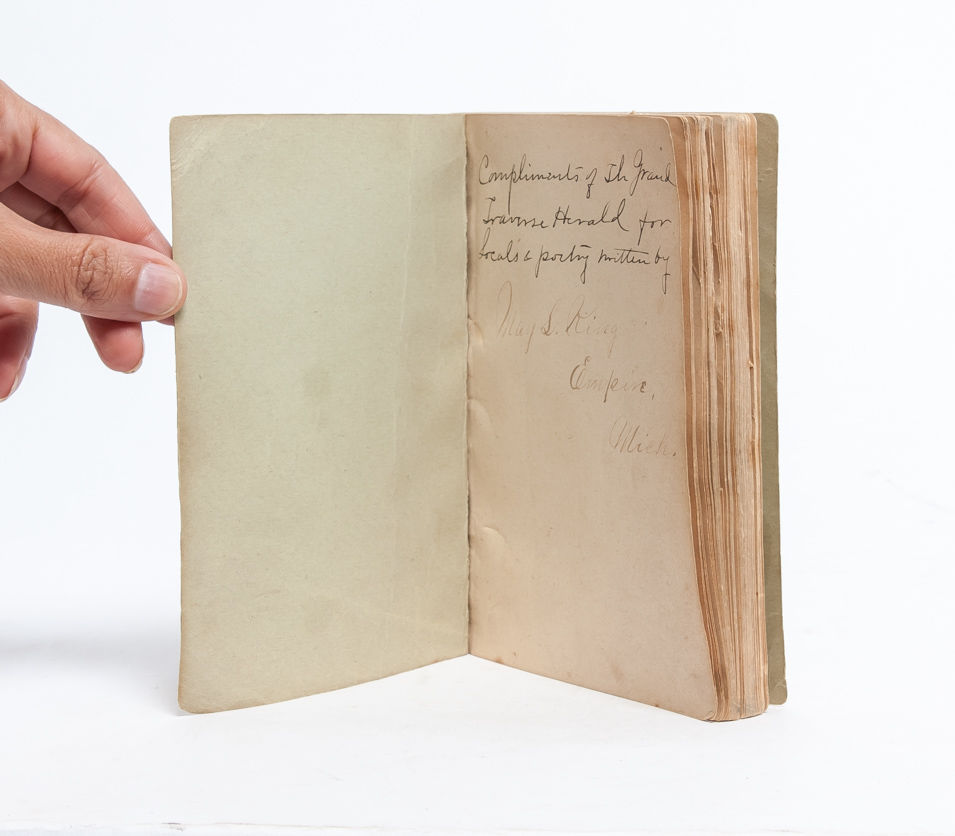 Compliments of Th Grand
Traverse Herald for
Local's & poetry written by
May L. King
Empire,
Mich.